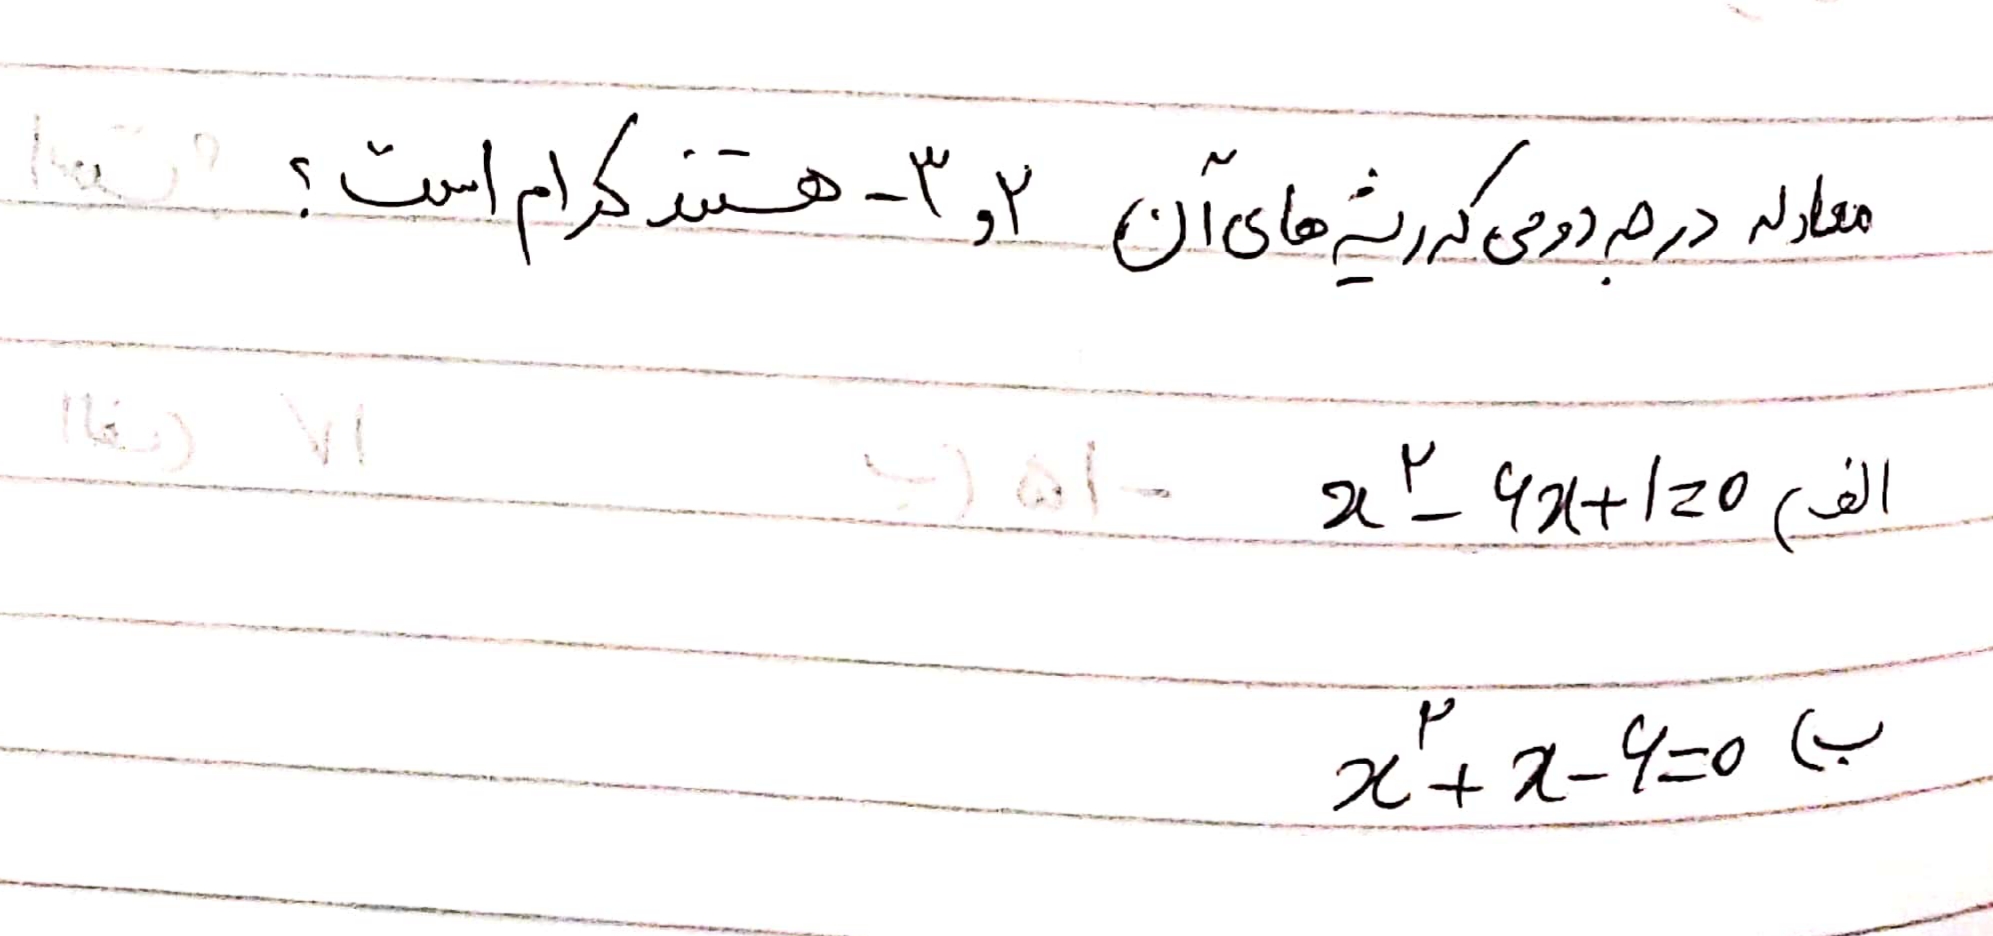 معادله درجه دومی که ریشه های آن ۲ و ۳- هستند کدام است؟
الف) x² - ۶x + ۱ = ۰
ب) x² + x - ۶ = ۰